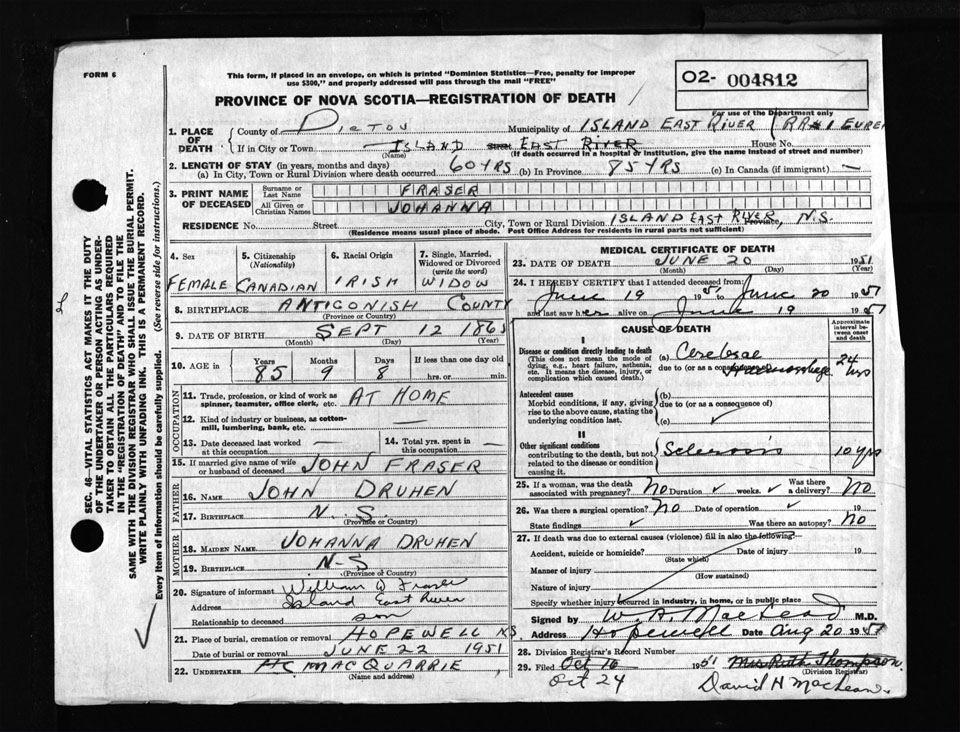 FORM 6
This form, if placed in an envelope, on which is printed "Dominion Statistics—Free, penalty for improper
use $300," and properly addressed will pass through the mail "FREE"
O2- 004812
For use of the Department only
PROVINCE OF NOVA SCOTIA—REGISTRATION OF DEATH
1. PLACE OF DEATH { County of PICTOU Municipality of ISLAND EAST RIVER RR#1 EURE
If in City or Town ISLAND Street EAST RIVER House No.
(Name) (If death occurred in a hospital or institution, give the name instead of street and number)
2. LENGTH OF STAY (in years, months and days)
(a) In City, Town or Rural Division where death occurred 60 YRS (b) In Province 85 YRS (c) In Canada (if immigrant) —
3. PRINT NAME OF DECEASED { Surname or Last Name FRASER
All Given or Christian Names JOHANNA
RESIDENCE No. Street City, Town or Rural Division ISLAND EAST RIVER Province, N.S.
(Residence means usual place of abode. Post Office Address for residents in rural parts not sufficient)
4. Sex FEMALE
5. Citizenship (Nationality) CANADIAN
6. Racial Origin IRISH
7. Single, Married, Widowed or Divorced (write the word) WIDOW
8. BIRTHPLACE ANTIGONISH COUNTY
(Province or Country)
9. DATE OF BIRTH SEPT 12 1865
(Month) (Day) (Year)
10. AGE in { Years 85 Months 9 Days 8 If less than one day old
hrs. or min.
OCCUPATION
11. Trade, profession, or kind of work as spinner, teamster, office clerk, etc. AT HOME
12. Kind of industry or business, as cotton-mill, lumbering, bank, etc. —
13. Date deceased last worked at this occupation —
14. Total yrs. spent in this occupation —
15. If married give name of wife or husband of deceased JOHN FRASER
FATHER
16. NAME JOHN DRUHEN
17. BIRTHPLACE N.S.
(Province or Country)
MOTHER
18. MAIDEN NAME JOHANNA DRUHEN
19. BIRTHPLACE N-S
(Province or Country)
20. Signature of informant William D Fraser
Address Island East River
Relationship to deceased son
21. Place of burial, cremation or removal HOPEWELL NS
Date of burial, cremation or removal JUNE 22 1951
22. UNDERTAKER HC MACQUARRIE
(Name and Address)
MEDICAL CERTIFICATE OF DEATH
23. DATE OF DEATH JUNE 20 1951
(Month) (Day)
24. I HEREBY CERTIFY that I attended deceased from:
June 19 1951 to June 20 1951
and last saw her alive on June 19 1951
CAUSE OF DEATH
Approximate interval between onset and death
I
Disease or condition directly leading to death
(This does not mean the mode of dying, e.g., heart failure, asthenia, etc. It means the disease, injury, or complication which caused death.)
(a) Cerebral
due to (or as a consequence of) Haemorrhage 24 hrs
Antecedent causes
Morbid conditions, if any, giving rise to the above cause, stating the underlying condition last.
(b)
due to (or as a consequence of)
(c) ✓
II
Other significant conditions
contributing to the death, but not related to the disease or condition causing it.
Sclerosis 10 yrs
25. If a woman, was the death associated with pregnancy? NO Duration ✓ weeks. ✓ Was there a delivery? NO
26. Was there a surgical operation? NO Date of operation ✓ 19
State findings ✓ Was there an autopsy? NO
27. If death was due to external causes (violence) fill in also the following:—
Accident, suicide or homicide? Date of injury 19
(State which)
Manner of injury
(How sustained)
Nature of injury
Specify whether injury occurred in industry, in home, or in public place
Signed by W. A. MacLeod M.D.
Address Hopewell Date Aug 20 1951
28. Division Registrar's Record Number
29. Filed Oct 16 1951 Mrs Ruth Thompson
(Division Registrar)
Oct 24 David H MacLean
SEC. 46—VITAL STATISTICS ACT MAKES IT THE DUTY
OF THE UNDERTAKER OR PERSON ACTING AS UNDER-
TAKER TO OBTAIN ALL THE PARTICULARS REQUIRED
IN THE "REGISTRATION OF DEATH" AND TO FILE THE
SAME WITH THE DIVISION REGISTRAR WHO SHALL ISSUE THE BURIAL PERMIT.
WRITE PLAINLY WITH UNFADING INK. THIS IS A PERMANENT RECORD.
Every item of information should be carefully supplied. (See reverse side for instructions.)